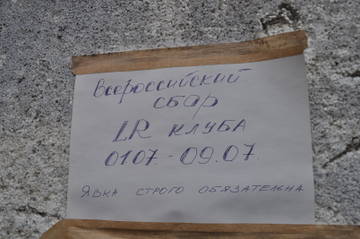 Всероссийский
сбор
LR клуба
0107-09.07.
Явка строго обязательна